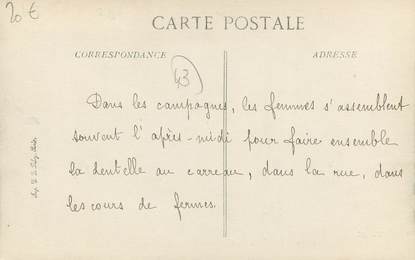 20 €
CARTE POSTALE
CORRESPONDANCE
ADRESSE
43
Dans les campagnes, les femmes s'assemblent
souvent l'après-midi pour faire ensemble
la dentelle au carreau, dans la rue, dans
les cours de fermes.